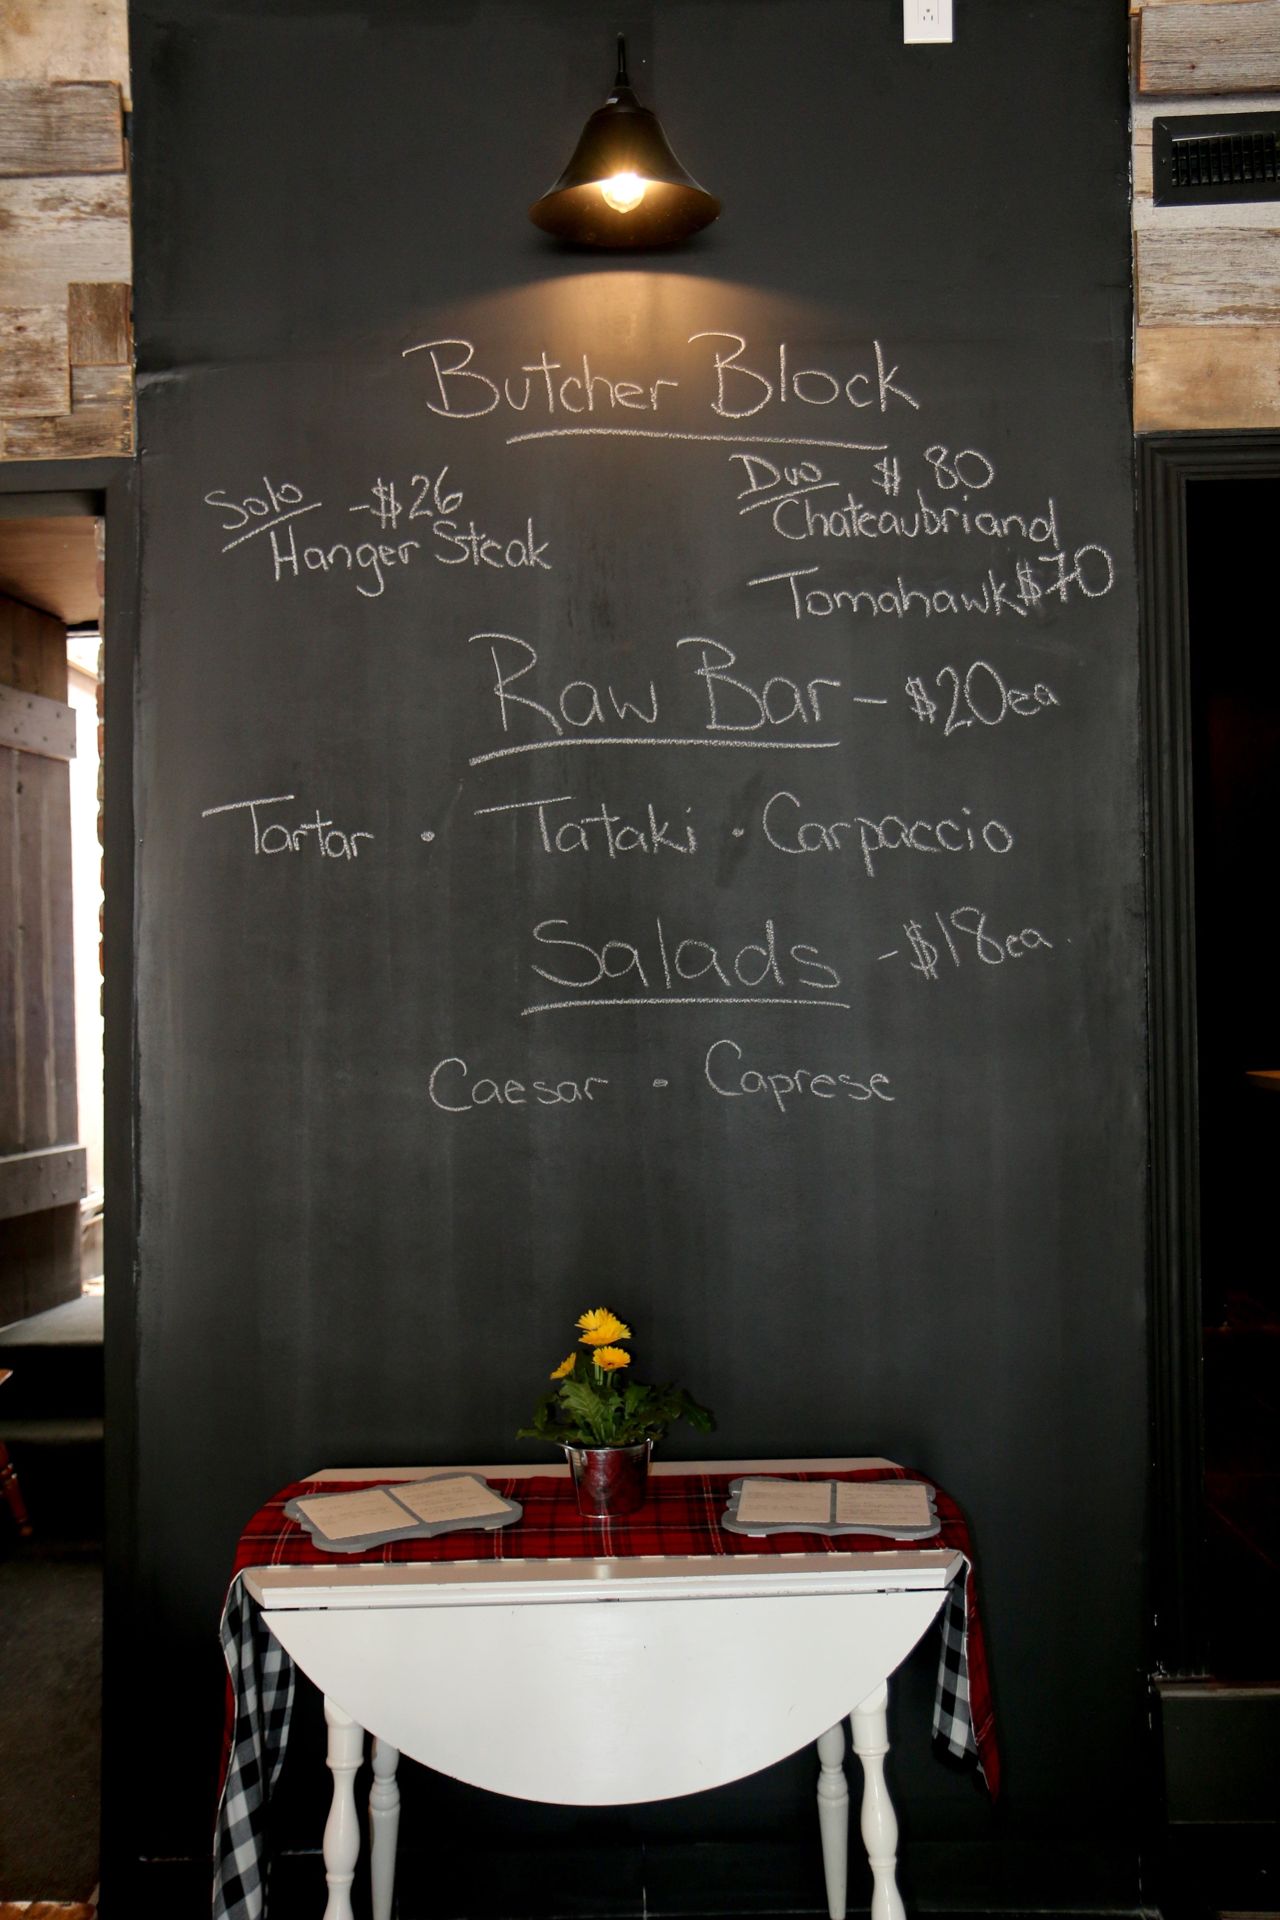 Butcher Block
Solo -$26
Hanger Steak
Duo $80
Chateaubriand
Tomahawk $70
Raw Bar - $20ea
Tartar • Tataki • Carpaccio
Salads - $18ea.
Caesar • Caprese